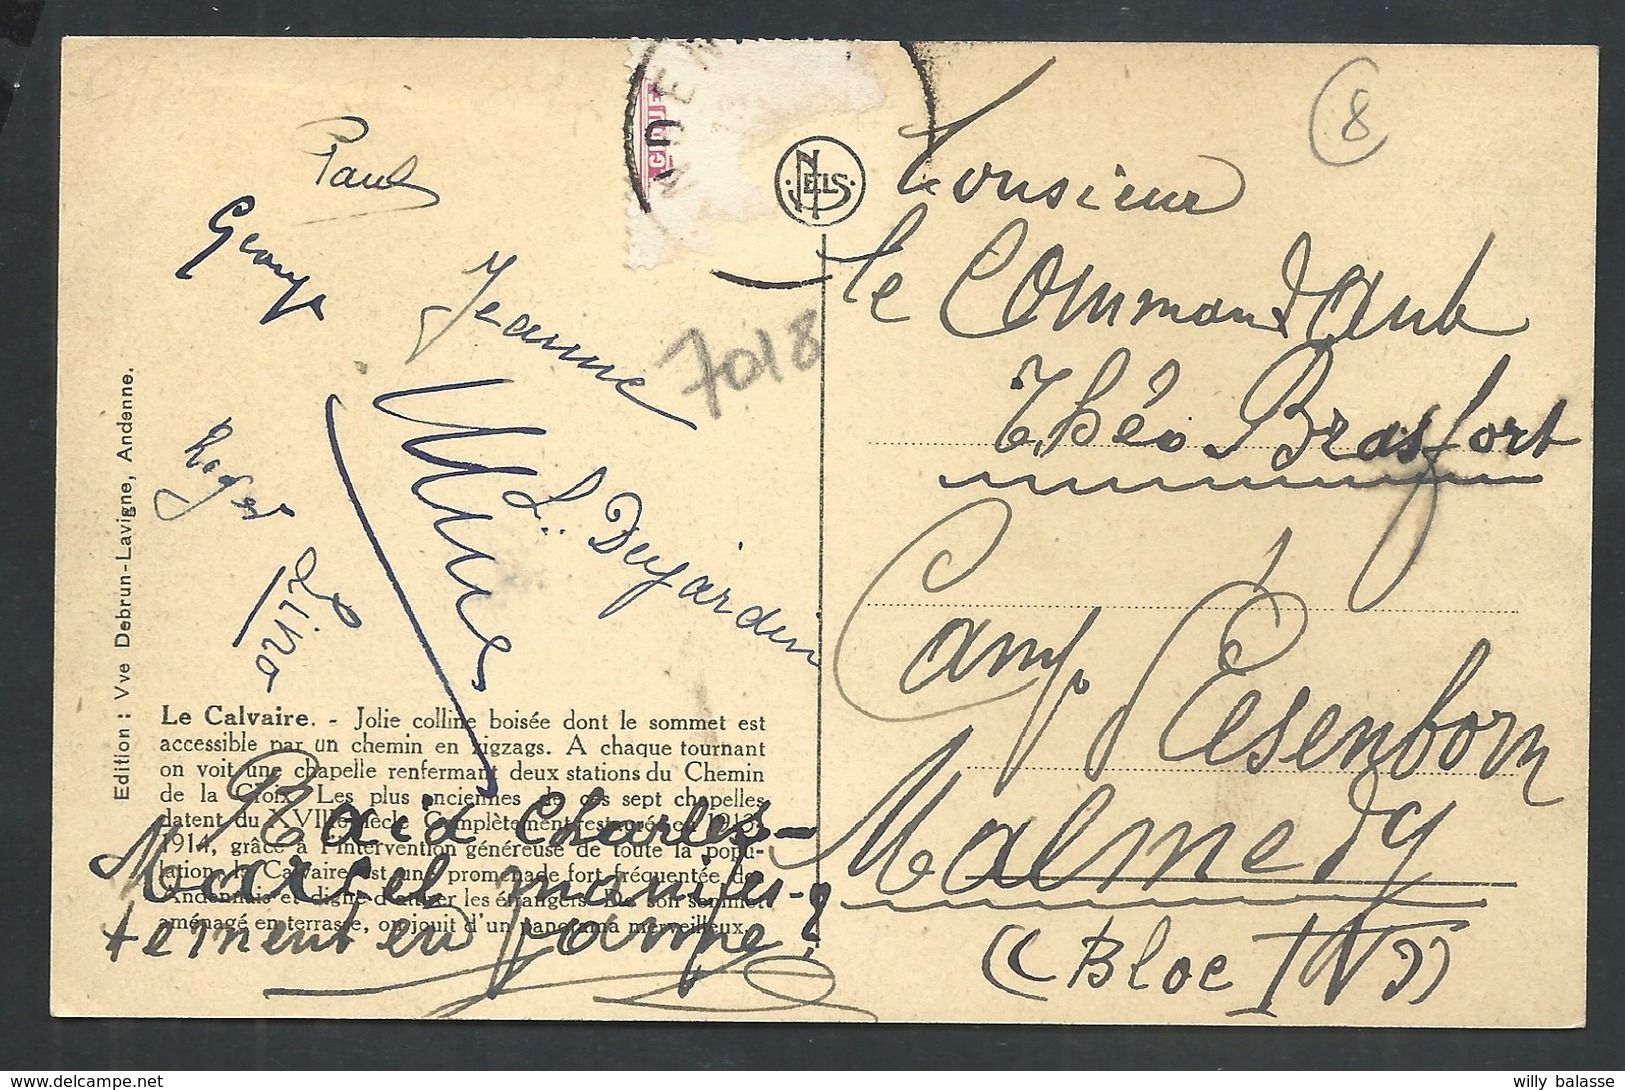 Paul
George
Jeanne
7018
Roger
L. Dujardin
Lina
Edition : Vve Debrun-Lavigne, Andenne.
Le Calvaire. - Jolie colline boisée dont le sommet est
accessible par un chemin en zigzags. A chaque tournant
on voit une chapelle renfermant deux stations du Chemin
de la Croix. Les plus anciennes de ces sept chapelles
datent du XVIII siècle Complètement restauré en 1913-
1914, grâce à l'intervention généreuse de toute la popu-
lation, le Calvaire est une promenade fort fréquentée des
Andennais et digne d'attirer les étrangers. De son sommet
aménagé en terrasse, on jouit d'un panorama merveilleux.
Raid Charles-
Marcel manifes-
tement en panne!
NELS
8
Monsieur
le Commandant
Théo Brasfort
Camp d'Esenborn
Malmedy
((Bloc IV))
willy balasse